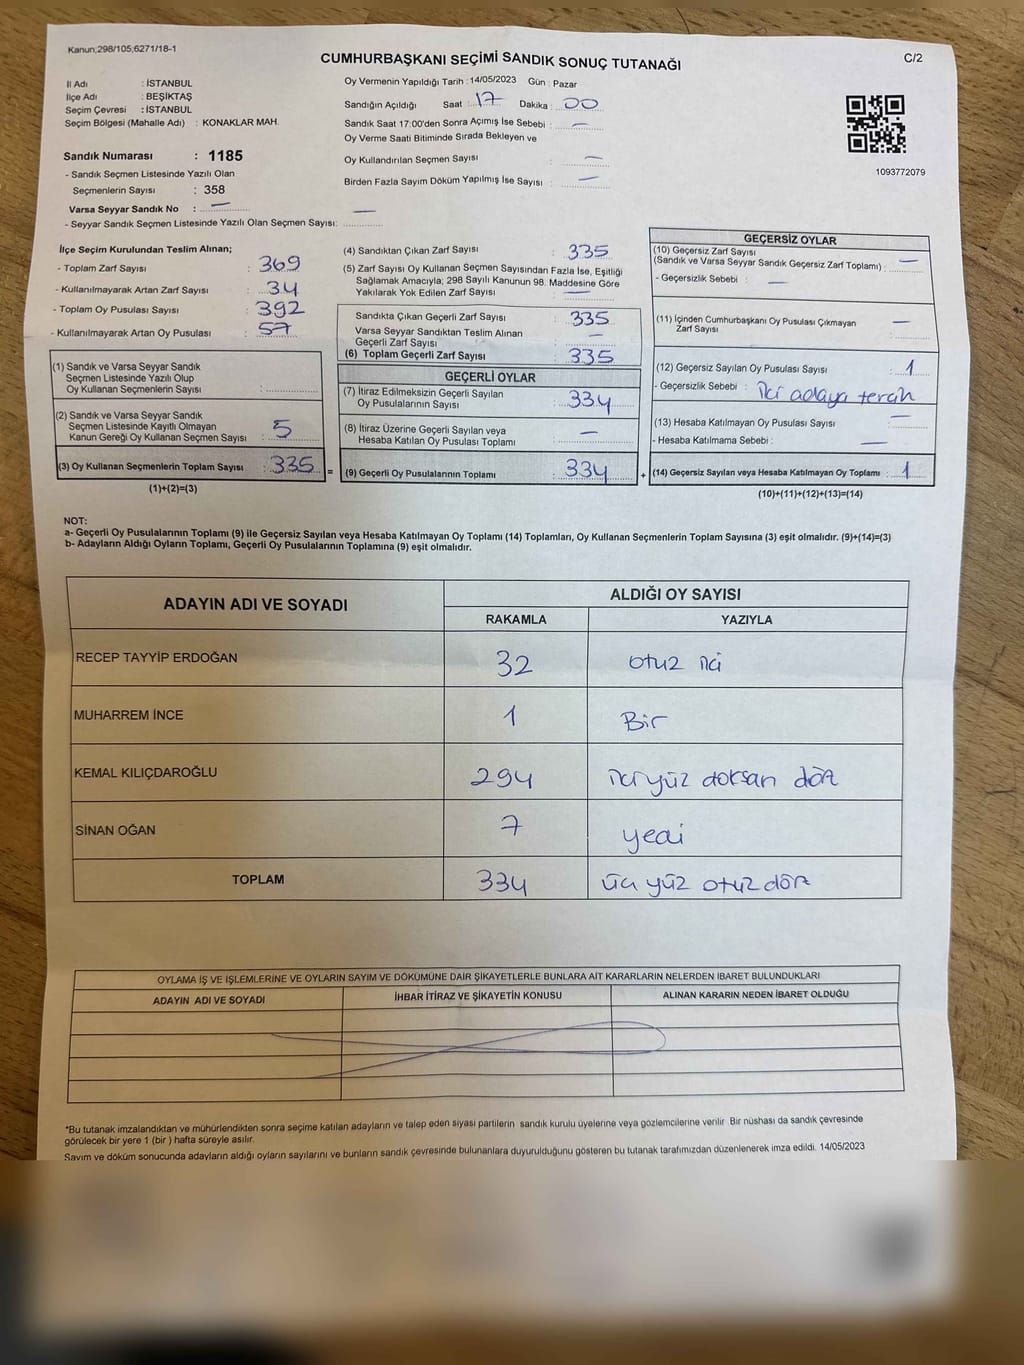 Kanun;298/105;6271/18-1
C/2
CUMHURBAŞKANI SEÇİMİ SANDIK SONUÇ TUTANAĞI
İl Adı : İSTANBUL
İlçe Adı : BEŞİKTAŞ
Seçim Çevresi : İSTANBUL
Seçim Bölgesi (Mahalle Adı) : KONAKLAR MAH.
Sandık Numarası : 1185
- Sandık Seçmen Listesinde Yazılı Olan
Seçmenlerin Sayısı : 358
Varsa Seyyar Sandık No : —
- Seyyar Sandık Seçmen Listesinde Yazılı Olan Seçmen Sayısı: —
Oy Vermenin Yapıldığı Tarih : 14/05/2023 Gün : Pazar
Sandığın Açıldığı Saat : 17 Dakika : 00
Sandık Saat 17:00'den Sonra Açımış İse Sebebi : —
Oy Verme Saati Bitiminde Sırada Bekleyen ve
Oy Kullandırılan Seçmen Sayısı : —
Birden Fazla Sayım Döküm Yapılmış İse Sayısı : —
1093772079
İlçe Seçim Kurulundan Teslim Alınan;
- Toplam Zarf Sayısı : 369
- Kullanılmayarak Artan Zarf Sayısı : 34
- Toplam Oy Pusulası Sayısı : 392
- Kullanılmayarak Artan Oy Pusulası : 57
(1) Sandık ve Varsa Seyyar Sandık
Seçmen Listesinde Yazılı Olup
Oy Kullanan Seçmenlerin Sayısı :
(2) Sandık ve Varsa Seyyar Sandık
Seçmen Listesinde Kayıtlı Olmayan
Kanun Gereği Oy Kullanan Seçmen Sayısı : 5
(3) Oy Kullanan Seçmenlerin Toplam Sayısı : 335 =
(1)+(2)=(3)
(4) Sandıktan Çıkan Zarf Sayısı : 335
(5) Zarf Sayısı Oy Kullanan Seçmen Sayısından Fazla İse, Eşitliği
Sağlamak Amacıyla; 298 Sayılı Kanunun 98. Maddesine Göre
Yakılarak Yok Edilen Zarf Sayısı : —
Sandıkta Çıkan Geçerli Zarf Sayısı : 335
Varsa Seyyar Sandıktan Teslim Alınan
Geçerli Zarf Sayısı : —
(6) Toplam Geçerli Zarf Sayısı : 335
GEÇERLİ OYLAR
(7) İtiraz Edilmeksizin Geçerli Sayılan
Oy Pusulalarının Sayısı : 334
(8) İtiraz Üzerine Geçerli Sayılan veya
Hesaba Katılan Oy Pusulası Toplamı : —
(9) Geçerli Oy Pusulalarının Toplamı : 334 +
GEÇERSİZ OYLAR
(10) Geçersiz Zarf Sayısı
(Sandık ve Varsa Seyyar Sandık Geçersiz Zarf Toplamı) : —
- Geçersizlik Sebebi : —
(11) İçinden Cumhurbaşkanı Oy Pusulası Çıkmayan
Zarf Sayısı : —
(12) Geçersiz Sayılan Oy Pusulası Sayısı : 1
- Geçersizlik Sebebi : iki adaya tercih
(13) Hesaba Katılmayan Oy Pusulası Sayısı : —
- Hesaba Katılmama Sebebi : —
(14) Geçersiz Sayılan veya Hesaba Katılmayan Oy Toplamı : 1
(10)+(11)+(12)+(13)=(14)
NOT:
a- Geçerli Oy Pusulalarının Toplamı (9) ile Geçersiz Sayılan veya Hesaba Katılmayan Oy Toplamı (14) Toplamları, Oy Kullanan Seçmenlerin Toplam Sayısına (3) eşit olmalıdır. (9)+(14)=(3)
b- Adayların Aldığı Oyların Toplamı, Geçerli Oy Pusulalarının Toplamına (9) eşit olmalıdır.
ADAYIN ADI VE SOYADI ALDIĞI OY SAYISI
RAKAMLA YAZIYLA
RECEP TAYYİP ERDOĞAN 32 otuz iki
MUHARREM İNCE 1 Bir
KEMAL KILIÇDAROĞLU 294 ikiyüz doksan dört
SİNAN OĞAN 7 yedi
TOPLAM 334 üç yüz otuz dört
OYLAMA İŞ VE İŞLEMLERİNE VE OYLARIN SAYIM VE DÖKÜMÜNE DAİR ŞİKAYETLERLE BUNLARA AİT KARARLARIN NELERDEN İBARET BULUNDUKLARI
ADAYIN ADI VE SOYADI İHBAR İTİRAZ VE ŞİKAYETİN KONUSU ALINAN KARARIN NEDEN İBARET OLDUĞU
*Bu tutanak imzalandıktan ve mühürlendikten sonra seçime katılan adayların ve talep eden siyasi partilerin sandık kurulu üyelerine veya gözlemcilerine verilir. Bir nüshası da sandık çevresinde
görülecek bir yere 1 (bir ) hafta süreyle asılır.
Sayım ve döküm sonucunda adayların aldığı oyların sayılarını ve bunların sandık çevresinde bulunanlara duyurulduğunu gösteren bu tutanak tarafımızdan düzenlenerek imza edildi. 14/05/2023